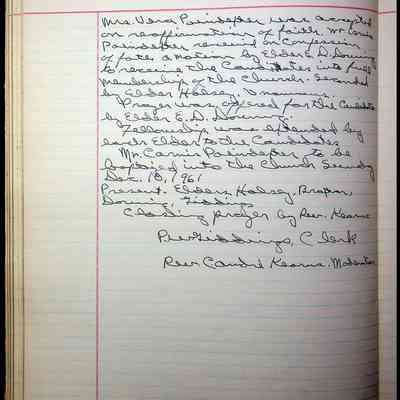 Mrs. Vera Poindexter was accepted
on reaffirmation of faith. Mr. Carnie
Poindexter received on Confession
of fate. a Motion by Elder E. D. Downing
to receive the Candidates into full
Membership of the Church. Seconded
by Elder Halsey. Unanimous.
Prayer was offered for the Candidates
by Elder E. D. Downing.
Fellowship was extended by
each Elder to the Candidates
Mr. Carnie Poindexter to be
baptized into the Church Sunday
Dec. 10, 1961
Present. Elders Halsey,
Downing, Giddings
Closing prayer by Rev. Kearns
Giddings, Clerk
Rev Kearns. Moderator